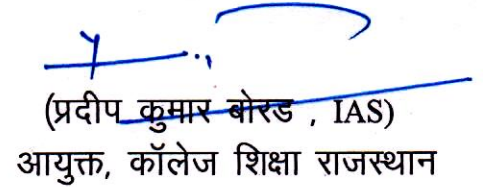 (प्रदीप कुमार बोरड , IAS)
आयुक्त, कॉलेज शिक्षा राजस्थान